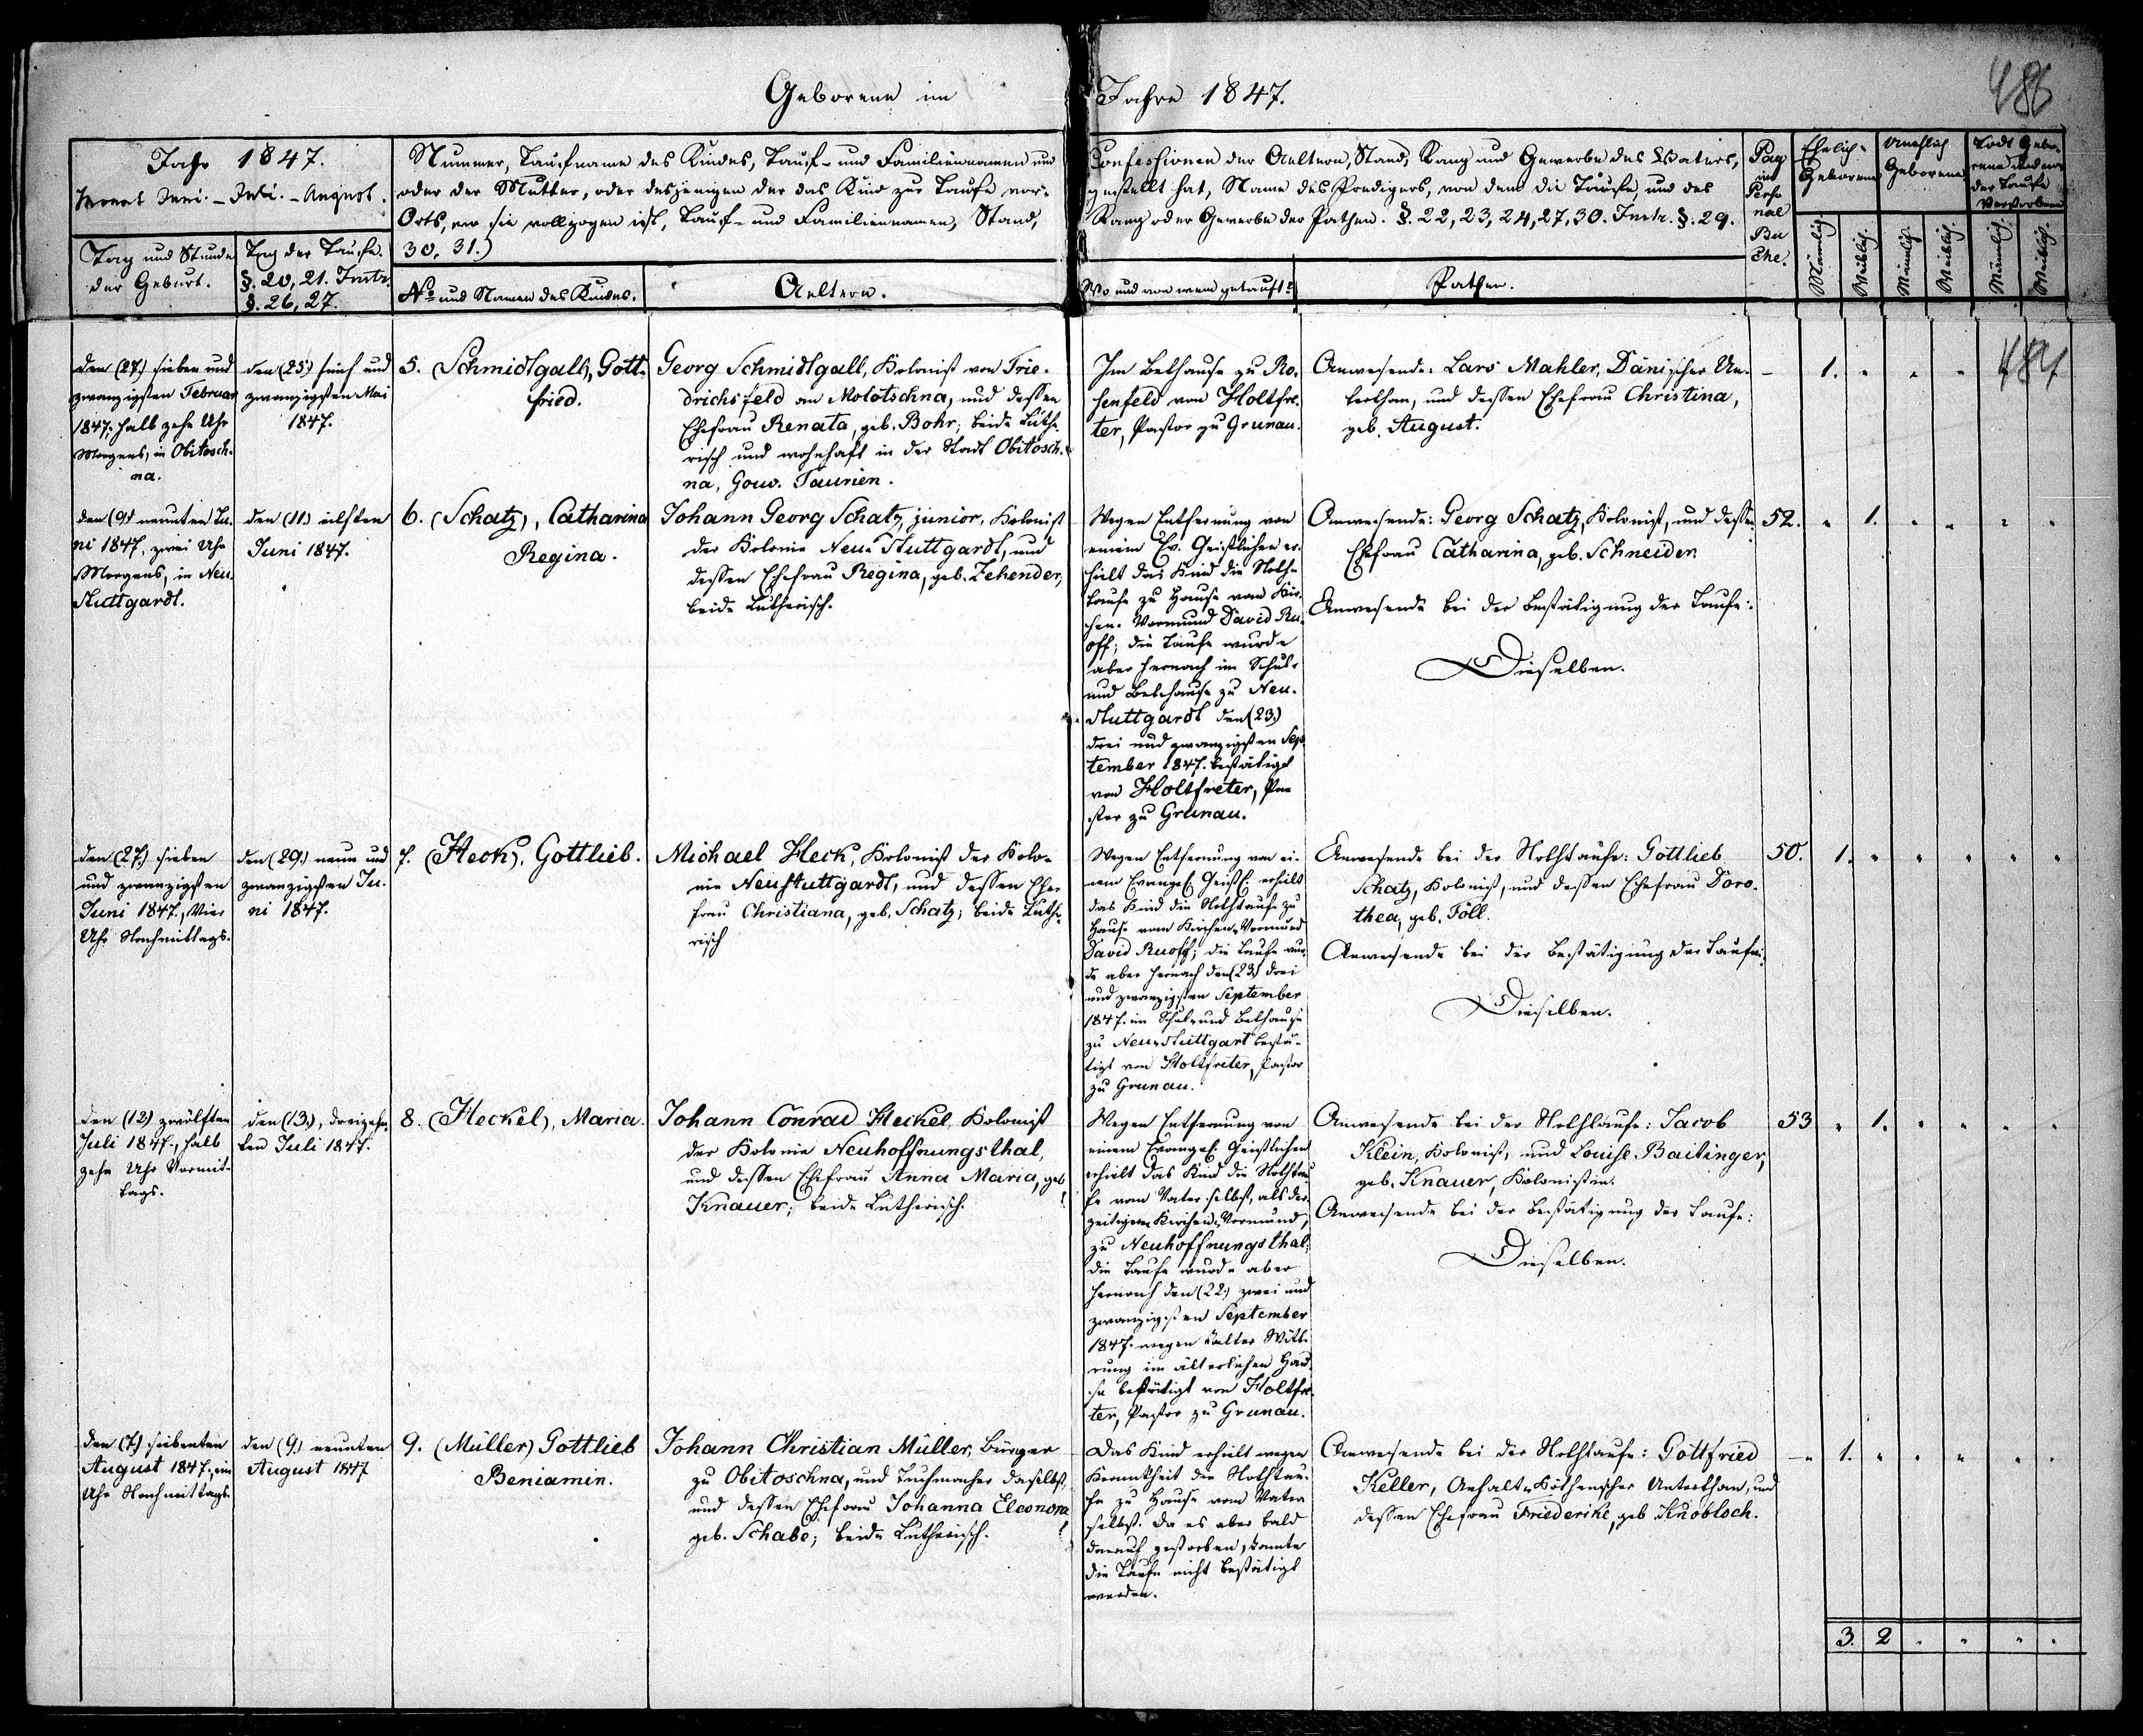 Geborene im Jahre 1847.
486
Jahr 1847.
Monat Juni. - Juli. - August.
Tag und Stunde
der Geburt.
Tag der Taufe.
§. 20, 21. Instr.
§. 26, 27.
Nummer, Taufname des Kindes, Tauf- und Familiennamen und
oder der Mutter, oder desjenigen der das Kind zur Taufe vor-
Orts, wo sie vollzogen ist, Tauf- und Familiennamen, Stand,
30, 31.)
No und Namen des Kindes.
Aeltern.
Confessionen der Aeltern, Stand, Rang und Gewerbe des Vaters,
gestellt hat, Name des Predigers, von dem die Taufe, und des
Rang oder Gewerbe der Pathen. §. 22, 23, 24, 27, 30. Instr. §. 29.
Wo und von wem getauft?
Pathen.
Pag
im
Perso
nal
Bu
che.
Ehelich-
Geborene
Unehlich
Geborene
Todt Gebo-
rene und vor
der Taufe
Verstorbene
Männlich.
Weiblich.
Männlich.
Weiblich.
Männlich.
Weiblich.
den (27.) sieben und
zwanzigsten Februar
1847; halb zehn Uhr
Morgens, in Obitosch-
na.
den (25) fünf und
zwanzigsten Mai
1847.
5. (Schmidtgall), Gott-
fried.
Georg Schmidtgall, Kolonist von Frie-
drichsfeld an Molotschna, und dessen
Ehefrau Renata, geb. Bohr; beide Luthe-
risch und wohnhaft in der Stadt Obitosch-
na, Gouv. Taurien.
Im Bethause zu Ro-
senfeld von Holtfre-
ter, Pastor zu Grunau.
Anwesende: Lars Mahler, Dänischer Un-
terthan, und dessen Ehefrau Christina,
geb. August.
1.
484
den (9.) neunten Ju-
ni 1847, zwei Uhr
Morgens, in Neu-
Stuttgardt.
den (11.) eilften
Juni 1847.
6. (Schatz), Catharina
Regina.
Johann Georg Schatz, junior, Kolonist
der Kolonie Neu-Stuttgardt, und
dessen Ehefrau Regina, geb. Zehender,
beide Lutherisch.
Wegen Entfernung von
einem Ev. Geistlichen er-
hielt das Kind die Noth-
taufe zu Hause vom Kir-
chen-Vormund David Ru-
off; die Taufe wurde
aber hernach im Schul-
und Bethause zu Neu-
Stuttgardt den (23.)
drei und zwanzigsten Sep-
tember 1847. bestätigt
von Holtfreter, Pa-
stor zu Grunau.
Anwesende: Georg Schatz, Kolonist, und dessen
Ehefrau Catharina, geb. Schneider.
Anwesende bei der Bestätigung der Taufe:
Dieselben.
52. 1.
den (27.) sieben
und zwanzigsten
Juni 1847, Vier
Uhr Nachmittags.
den (29.) neun und
zwanzigsten Ju-
ni 1847.
7. (Heck), Gottlieb.
Michael Heck, Kolonist der Kolo-
nie Neustuttgardt, und dessen Ehe-
frau Christiana, geb. Schatz; beide Luthe-
risch
Wegen Entfernung von ei-
nem Evangel. Geistl. erhielt
das Kind die Nothtaufe zu
Hause vom Kirchen-Vormund
David Ruoff; die Taufe wur-
de aber hernach den (23) drei
und zwanzigsten September
1847. im Schul- und Bethause
zu Neu-Stuttgart bestä-
tigt von Holtfreter, Pastor
zu Grunau.
Anwesende bei der Nothtaufe: Gottlieb
Schatz, Kolonist, und dessen Ehefrau Doro-
thea, geb. Föll.
Anwesende bei der Bestätigung der Taufe:
Dieselben.
50. 1.
den (12) zwölften
Juli 1847, halb
zehn Uhr Vormit-
tags.
den (13.), dreizehn-
ten Juli 1847.
8. (Heckel), Maria.
Johann Conrad Heckel, Kolonist
der Kolonie Neuhoffnungsthal,
und dessen Ehefrau Anna Maria, geb
Knauer; beide Lutherisch.
Wegen Entfernung von
einem Evangel. Geistlichen
erhielt das Kind die Nothtau-
fe vom Vater selbst, als der-
zeitigem Kirchen-Vormund,
zu Neuhoffnungsthal;
die Taufe wurde aber
hernach den (22.) zwei und
zwanzigsten September
1847. wegen kalter Witte-
rung im älterlichen Hau-
se bestätigt von Holtfre-
ter, Pastor zu Grunau.
Anwesende bei der Nothtaufe: Jacob
Klein, Kolonist, und Louise Baitinger,
geb. Knauer, Kolonistin.
Anwesende bei der Bestätigung der Taufe:
Dieselben.
53 1.
den (7.) siebenten
August 1847, ein
Uhr Nachmittags.
den (9.) neunten
August 1847
9. (Müller) Gottlieb
Beniamin.
Johann Christian Müller, Bürger
zu Obitoschna, und Tuchmacher daselbst,
und dessen Ehefrau Johanna Eleonora
geb. Schabe; beide Lutherisch.
Das Kind erhielt wegen
Krankheit die Nothtau-
fe zu Hause vom Vater
selbst. Da es aber bald
darauf gestorben, konnte
die Taufe nicht bestätigt
werden.
Anwesende bei der Nothtaufe: Gottfried
Keller, Anhalt-Köthenscher Unterthan, und
dessen Ehefrau Friederike, geb Knobloch.
1.
3. 2